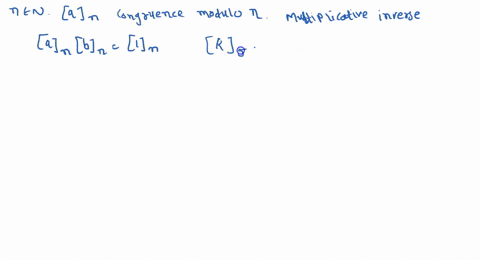 n∈N. [a]n congruence modulo n. Multiplicative inverse
[a]n [b]n = [1]n [K]8.